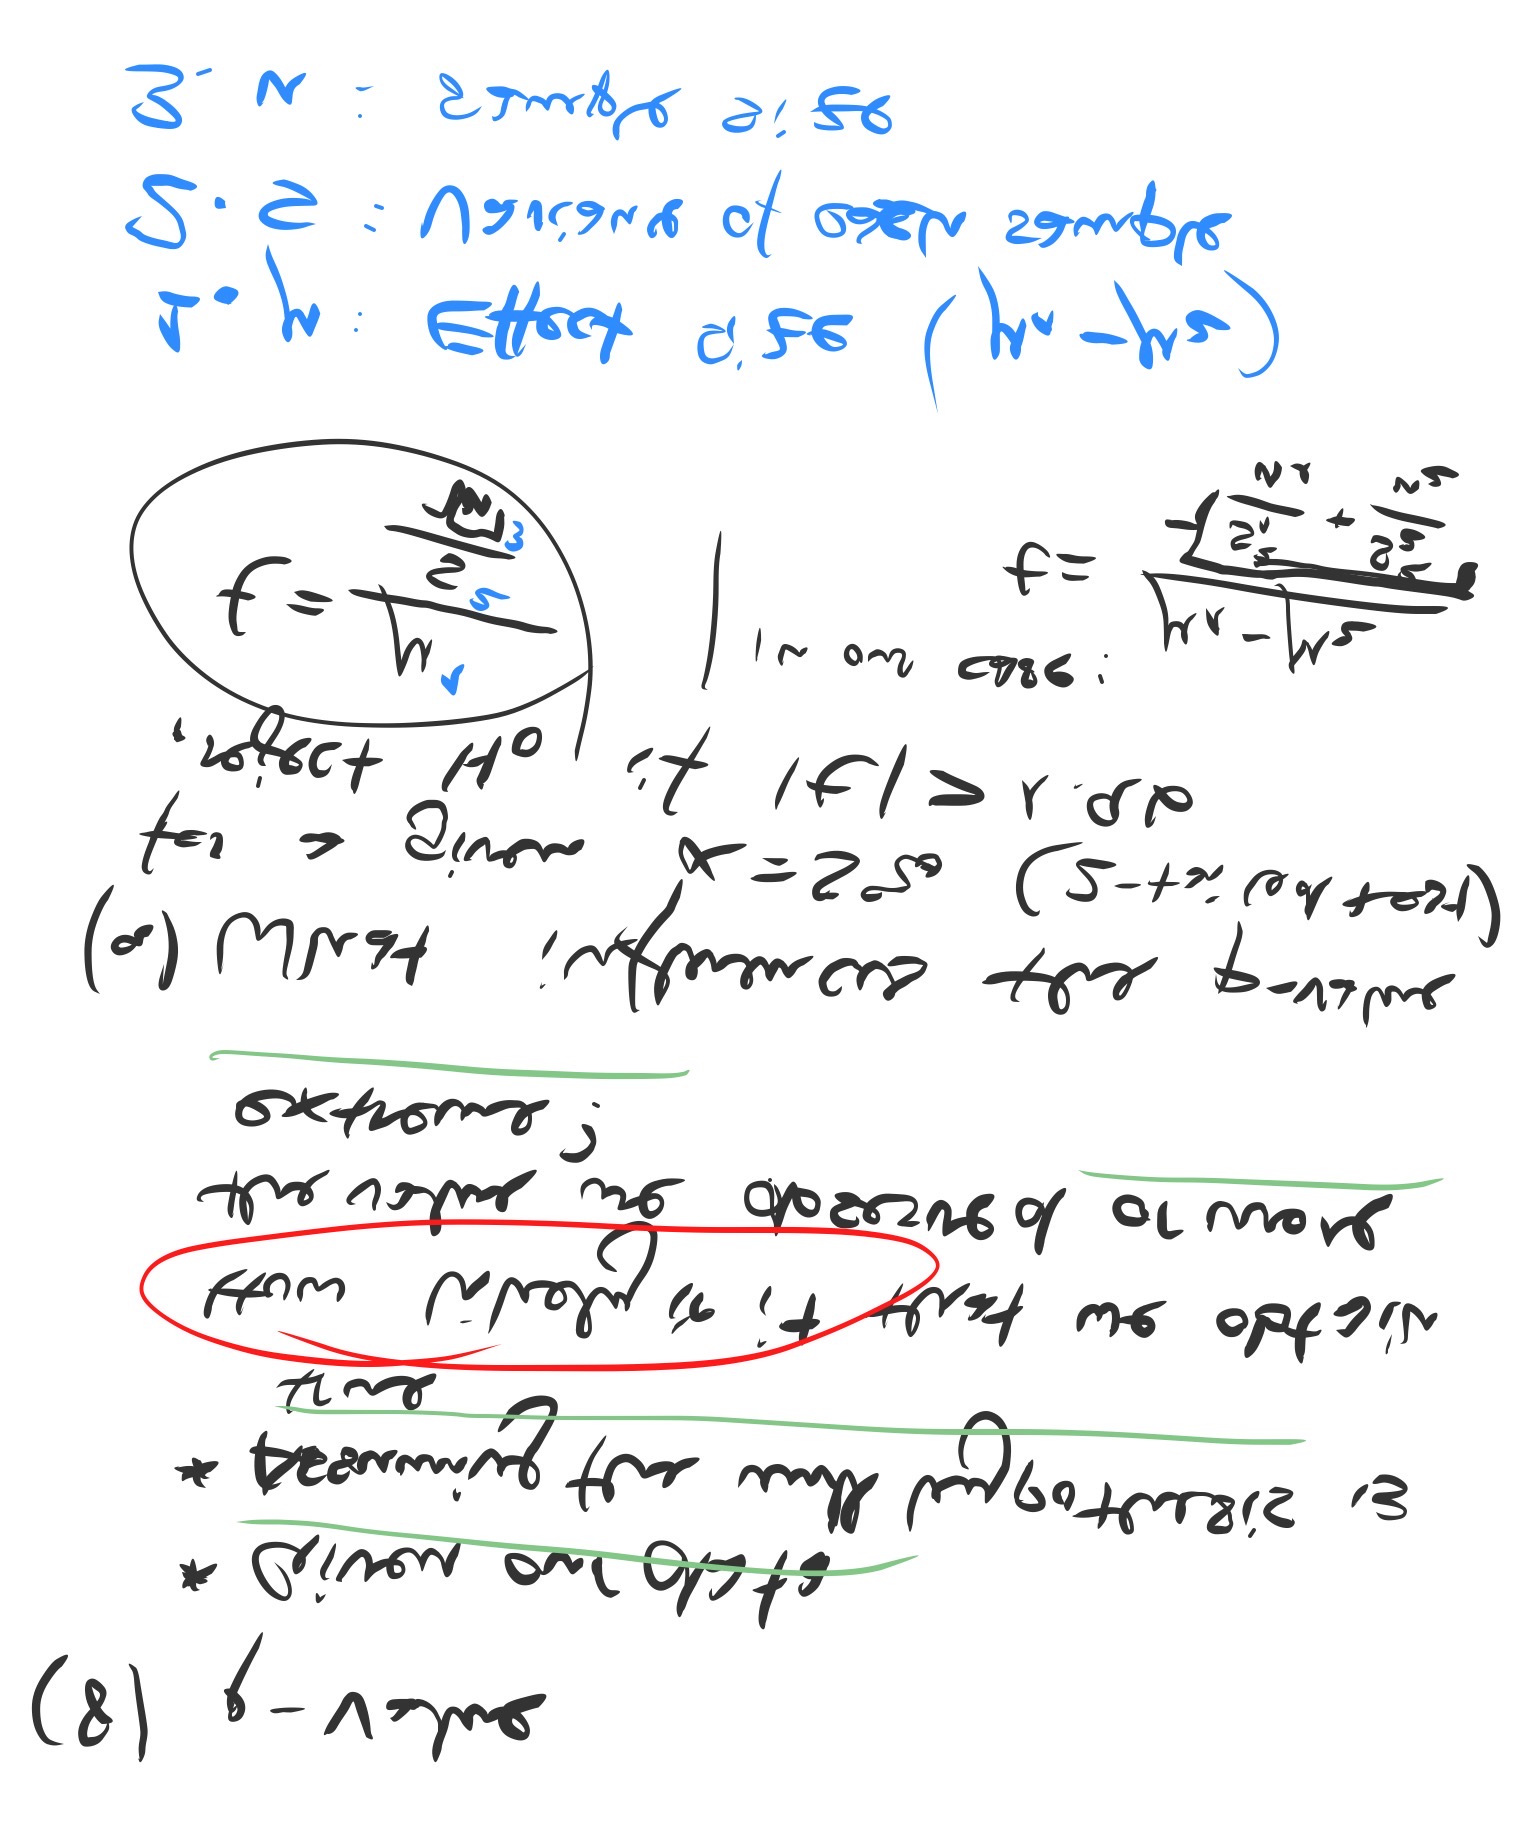 (8) p-value
* Given our data
* Assuming the null hypothesis is
true
How likely is it that we obtain
the value we observed or more
extreme?
(a) What influences the p-value
for a given α=5% (2-tailed test)
, reject H₀ if |t| > 1.96
t = μ¹ / (s² / √n³) | in our case: t = (μ₁ - μ₂) / √(s₁²/n₁ + s₂²/n₂)
1. μ: Effect size (μ₁-μ₂)
2. s: Variance of each sample
3. n: sample size